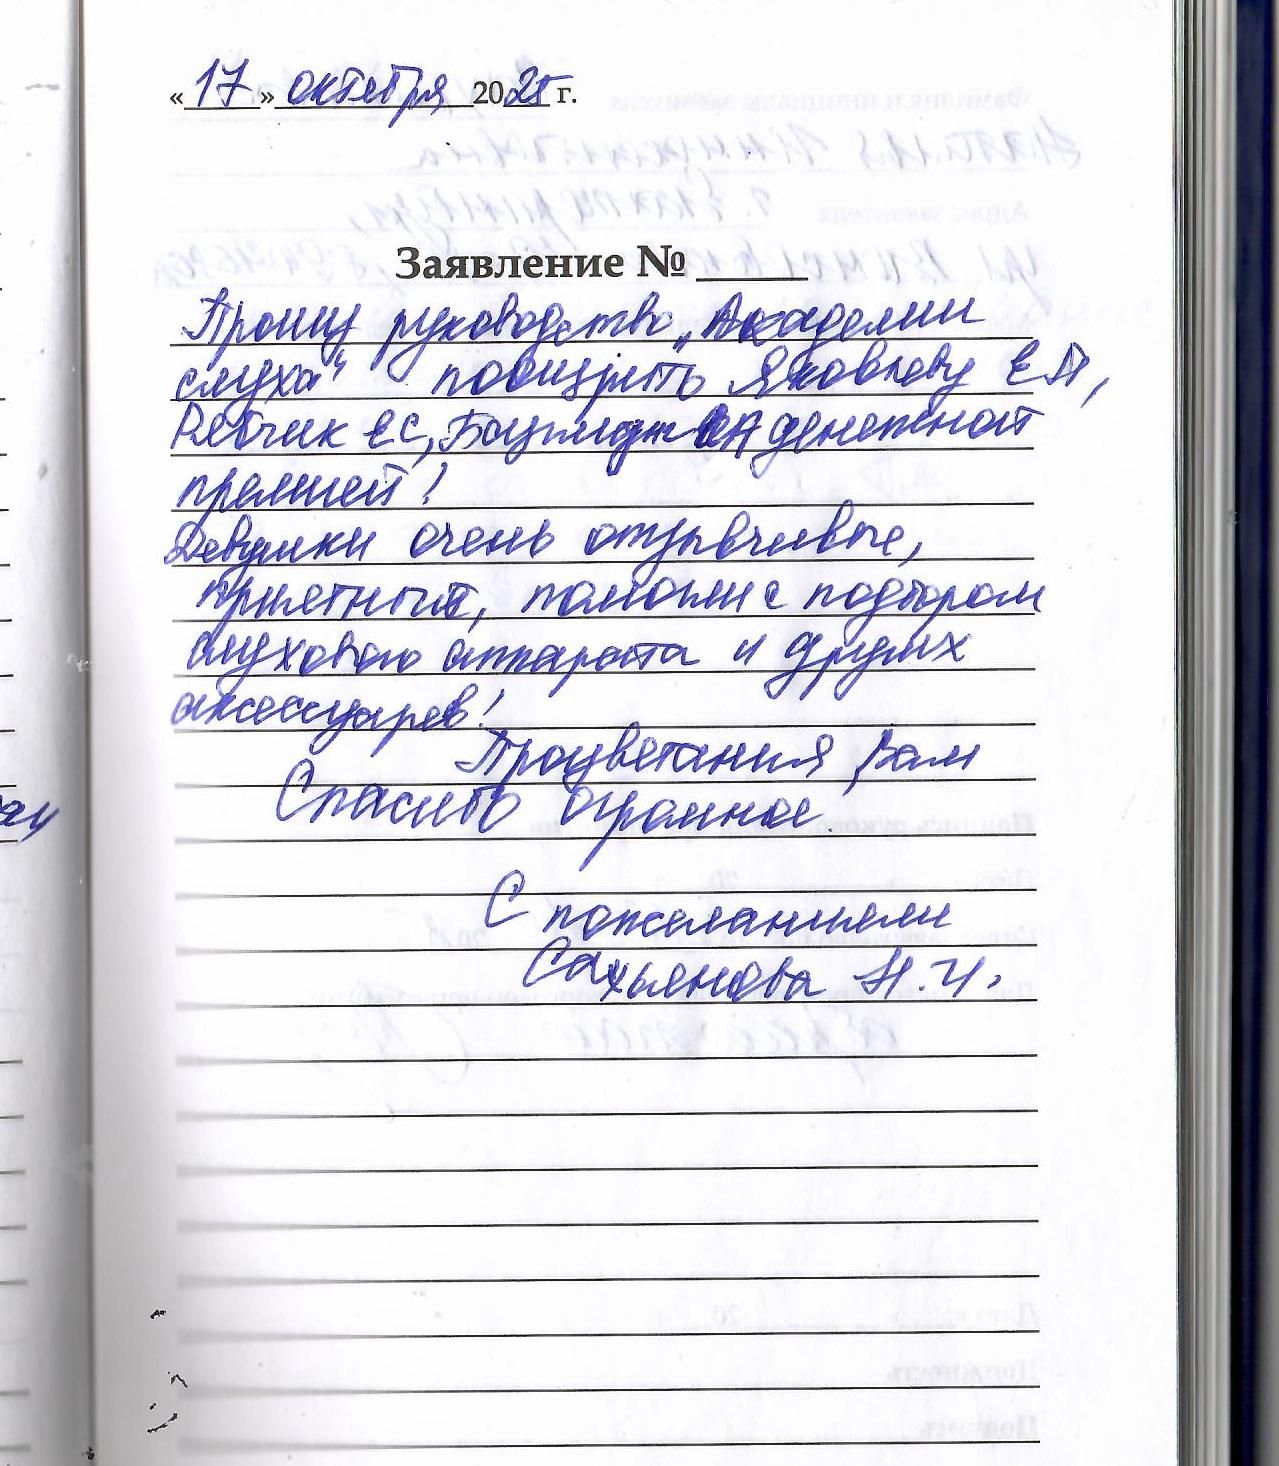 «17» октября 2025 г.
Заявление №
Прошу руководство „Академии
слуха“ поощрить Яковлеву Е А,
Ревчик ЕС, денежной
премией!
Девушки очень отзывчивые,
приятные, помогли с подбором
слухового аппарата и других
аксессуаров!
Процветания Вам
Спасибо огромное.
С пожеланиями
Сахьянова Н.И.